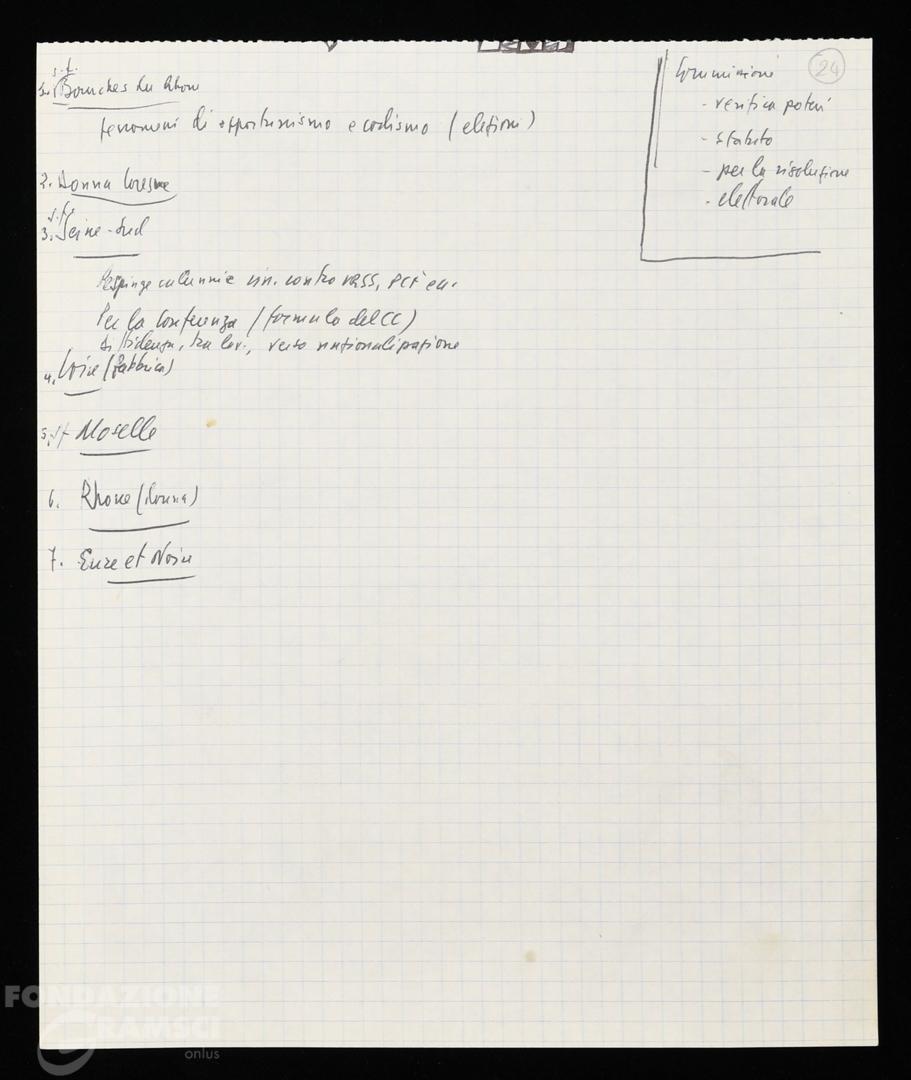 s.f.
1. Bouches du Rhone
fenomeni di opportunismo e codismo (elezioni)
2. Donna
3. s.f. Seine-Sud
Respinge calunnie cin. contro URSS, PCI ecc.
Per la conferenza (formula del CC)
Si fidanza, tra lav., verso nazionalizzazione
4. Loire (fabbrica)
5. s.f. Moselle
6. Rhone (donna)
7. Eure et Loire
Commissioni
- verifica poteri
- statuto
- per la risoluzione
- elettorale
24
FONDAZIONE
GRAMSCI
onlus